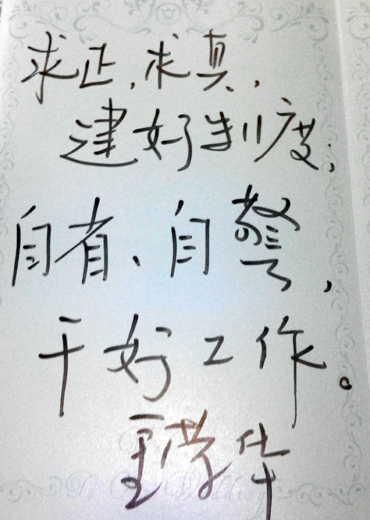 求正,求真,
建好制度;
自省、自警,
干好工作。